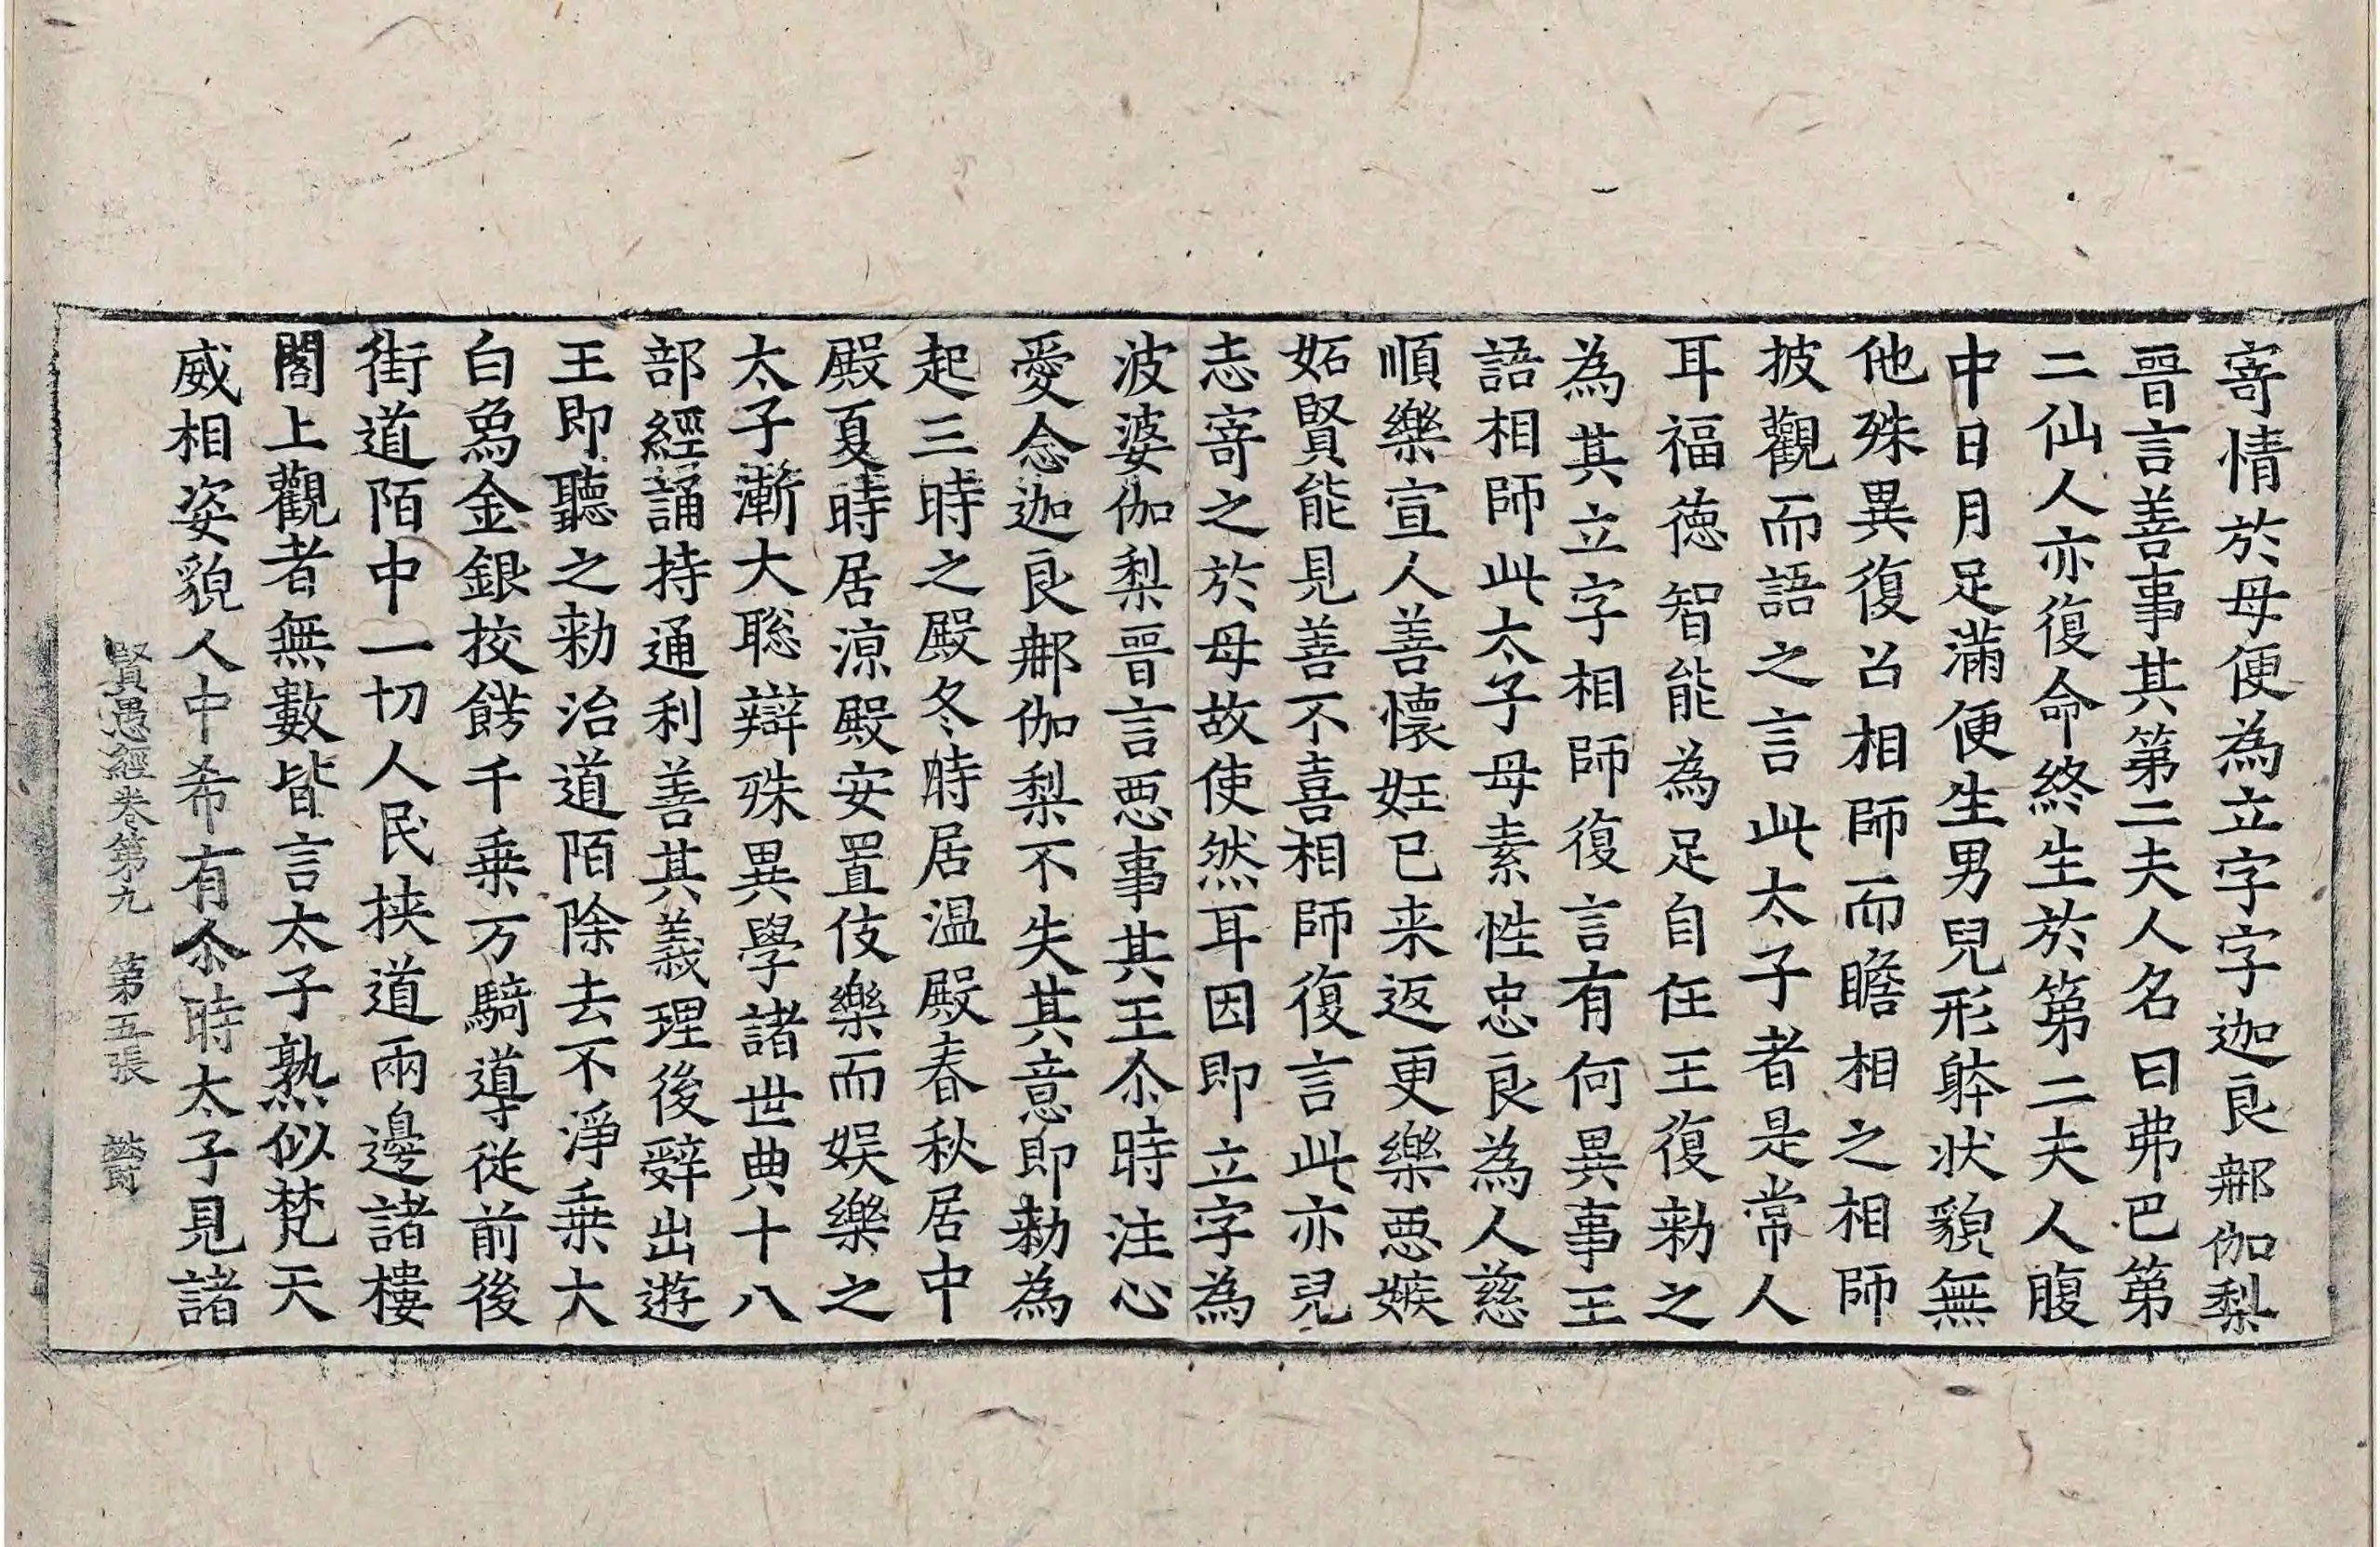 寄情於母便為立字字迦良那伽梨
晉言善事其第二夫人名曰弗巴第
二仙人亦復命終生於第二夫人腹
中日月足滿便生男兒形躰狀貌無
他殊異復召相師而瞻相之相師
披觀而語之言此太子者是常人
耳福德智能為足自任王復勑之
為其立字相師復言有何異事王
語相師此太子母素性忠良為人慈
順樂宣人善懷妊已来返更樂惡嫉
妬賢能見善不喜相師復言此亦兒
志寄之於母故使然耳因即立字為
波婆伽梨晉言惡事其王尒時注心
愛念迦良那伽梨不失其意即勑為
起三時之殿冬時居温殿春秋居中
殿夏時居凉殿安置伎樂而娱樂之
太子漸大聡辯殊異學諸世典十八
部經誦持通利善其義理後辝出遊
王即聽之勑治道陌除去不淨乗大
白象金銀挍餝千乗万騎導從前後
街道陌中一切人民挾道兩邊諸樓
閣上觀者無數皆言太子熟似梵天
威相姿貌人中希有尒時太子見諸
賢愚經卷第九　第五張　欝